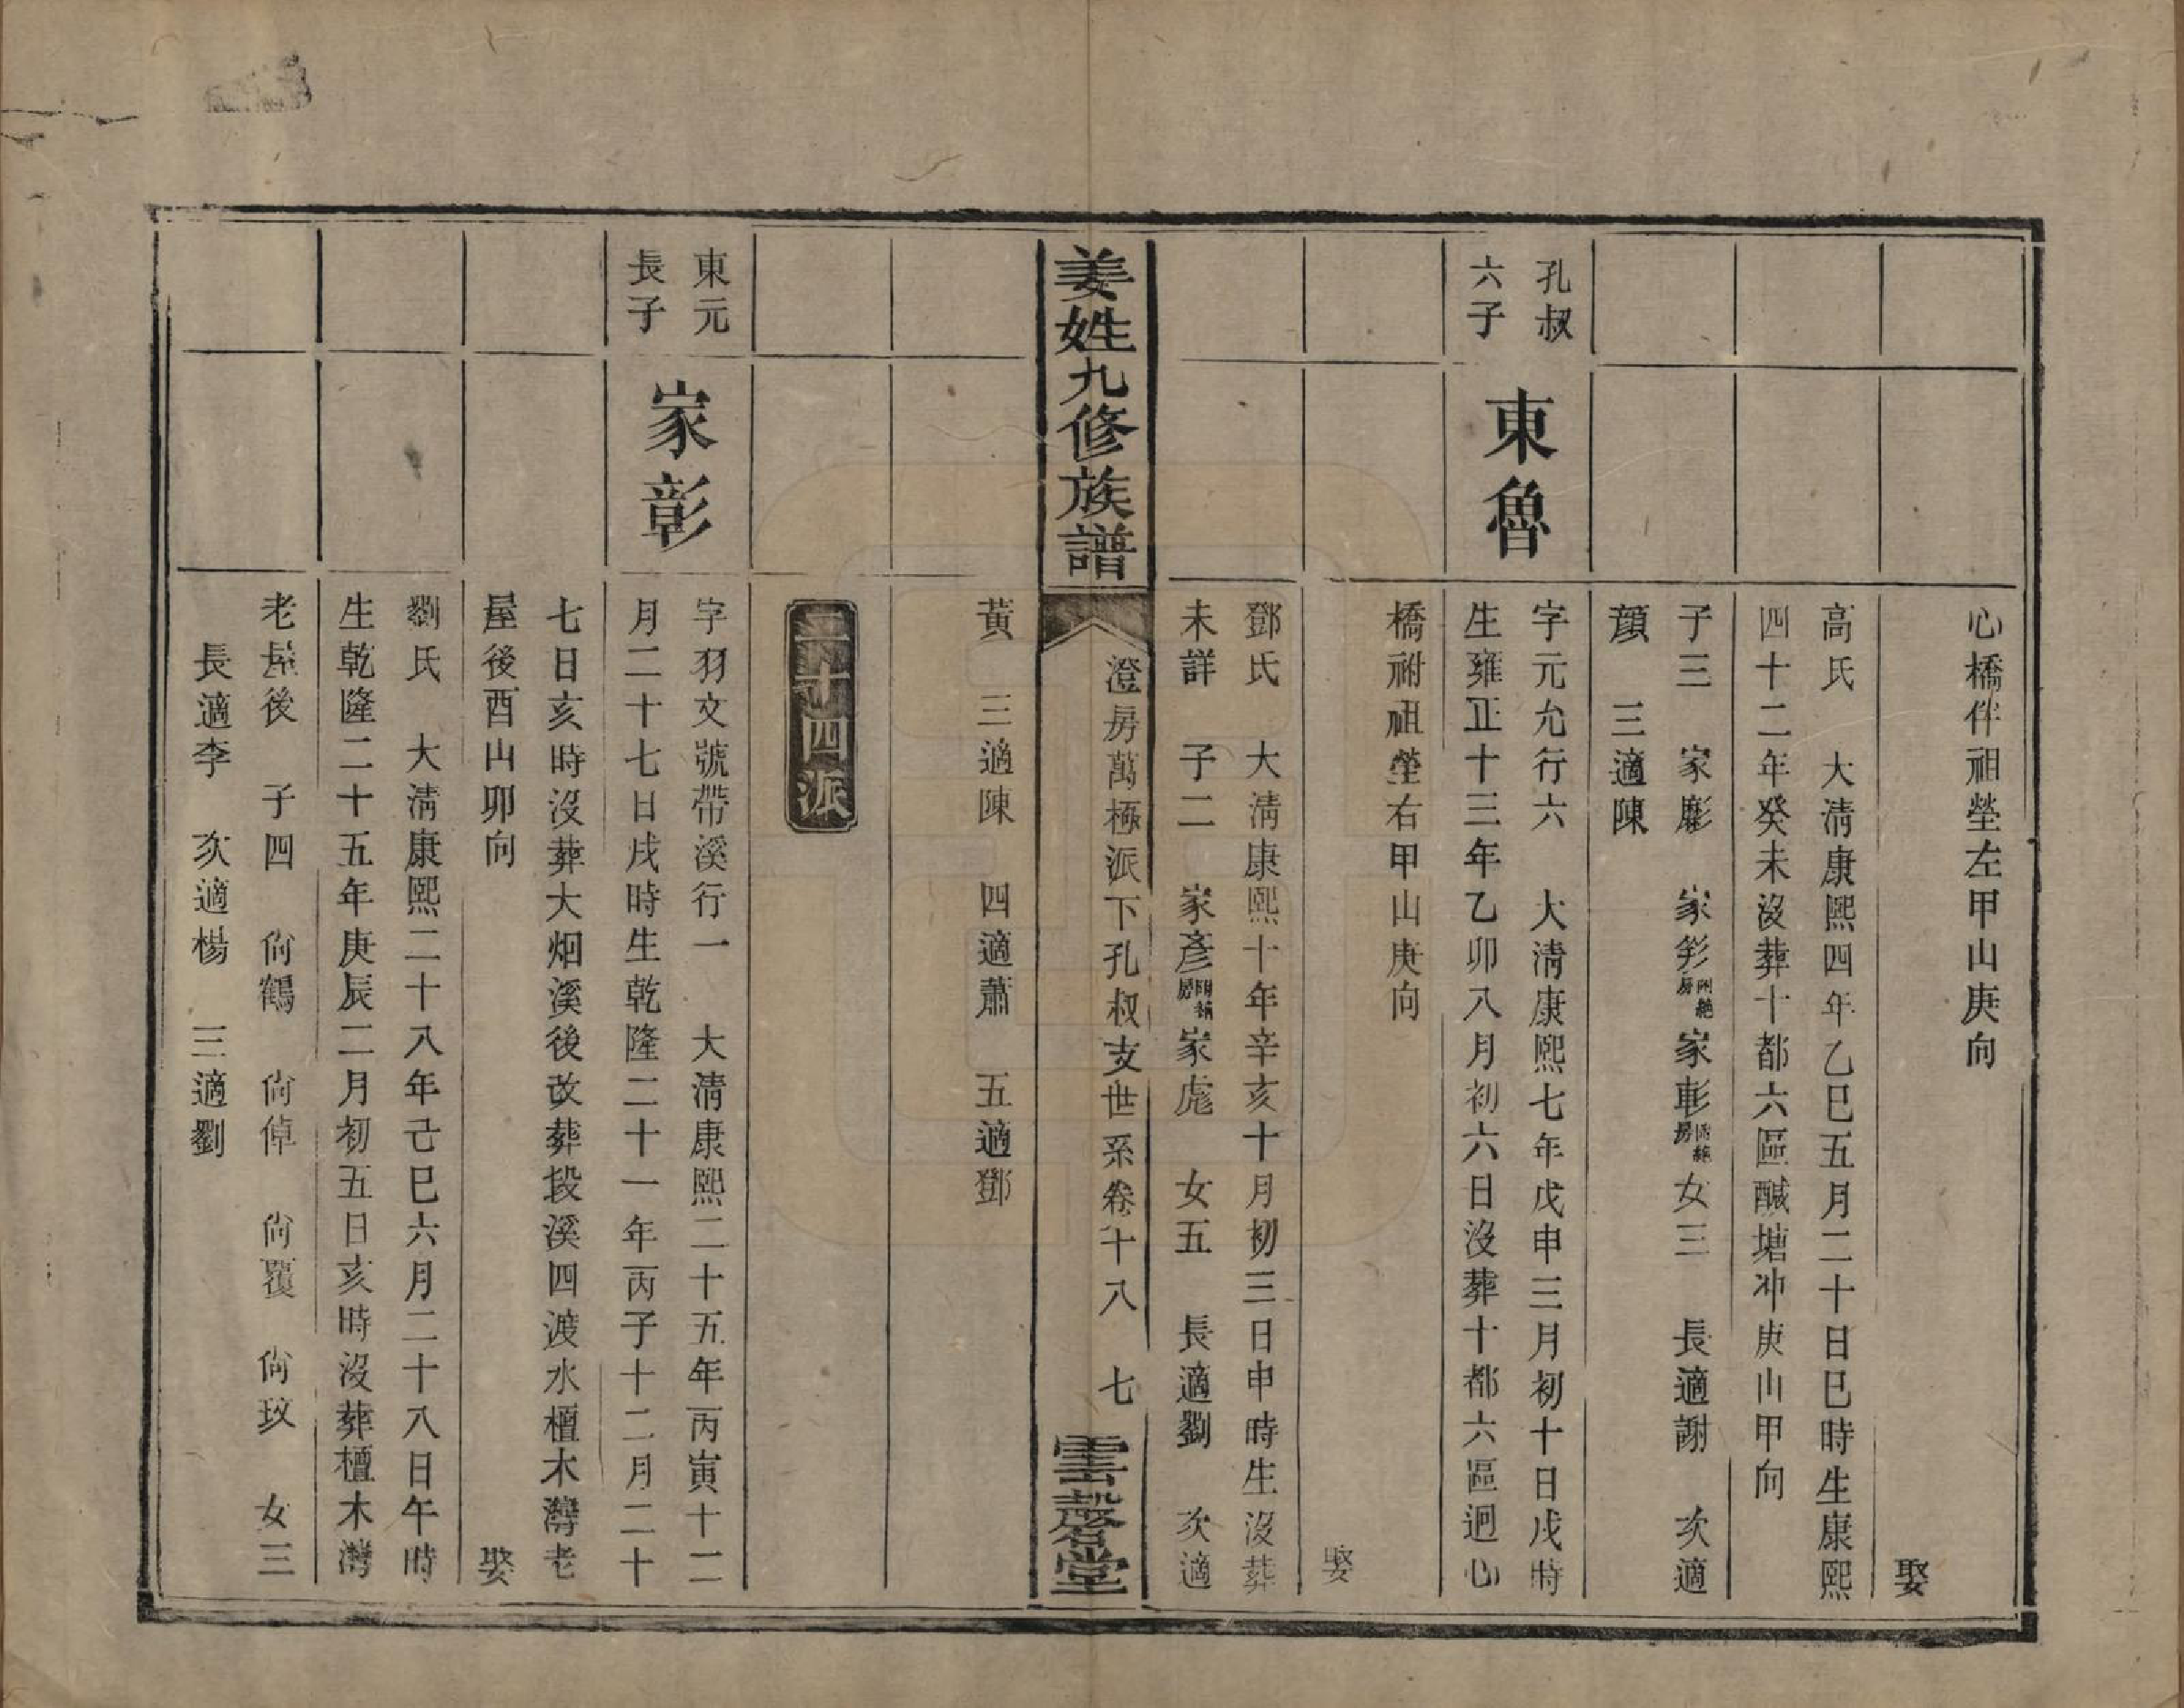 心橋伴祖塋左甲山庚向
娶
高氏　大淸康熙四年乙巳五月二十日巳時生康熙
四十二年癸未沒葬十都六區醎塘冲庚山甲向
子三　家彪　家彣附絶房家彰女三　長適謝　次適
顔　三適陳
孔叔
六子
東魯
字元允行六　大淸康熙七年戊申三月初十日戌時
生雍正十三年乙卯八月初六日沒葬十都六區迴心
橋祔祖塋右甲山庚向
娶
鄧氏　大淸康熙十年辛亥十月初三日申時生沒葬
未詳　子二　家彥家彪　女五　長適劉　次適
姜姓九修族譜
澄房萬極派下孔叔支世系卷十八　七
雲磬堂
黃　三適陳　四適蕭　五適鄧
二十四派
東元
長子
家彰
字羽文號帶溪行一　大淸康熙二十五年丙寅十二
月二十七日戌時生乾隆二十一年丙子十二月二十
七日亥時沒葬大烟溪後改葬段溪四渡水檀木灣老
屋後酉山卯向
娶
劉氏　大淸康熙二十八年己巳六月二十八日午時
生乾隆二十五年庚辰二月初五日亥時沒葬檀木灣
老屋後　子四　尙鶴　尙倬　尙覆　尙玟　女三
長適李　次適楊　三適劉